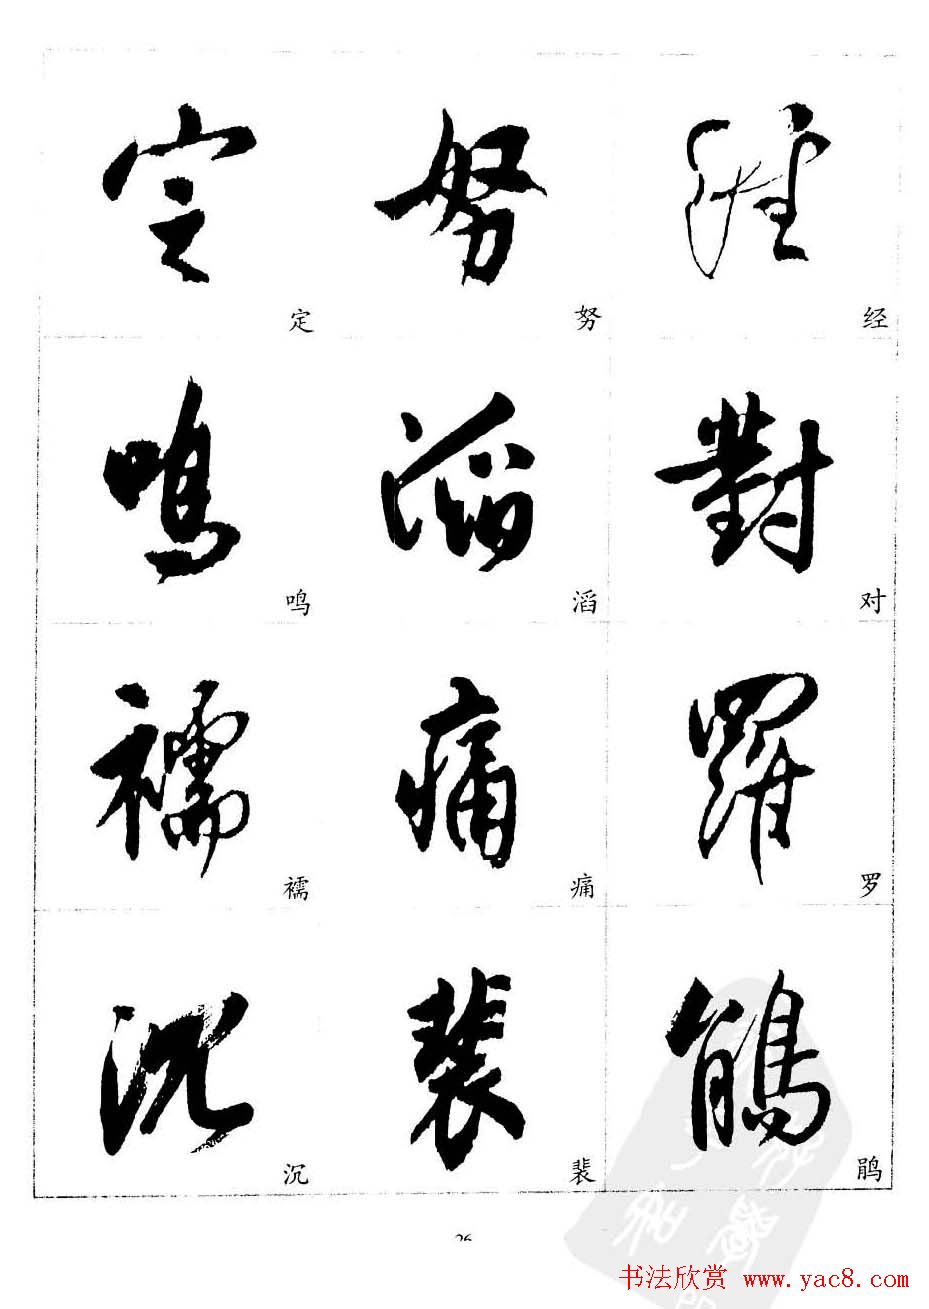 定 努 经
定 努 经
鸣 滔 對
鸣 滔 对
襦 痛 羅
襦 痛 罗
沉 裴 鹃
沉 裴 鹃
26
书法欣赏 www.yac8.com